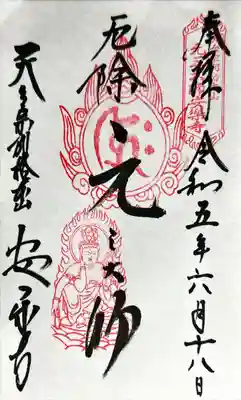 奉拝 令和五年六月十八日
厄除 元三大師
天台宗別格本山 安楽寺